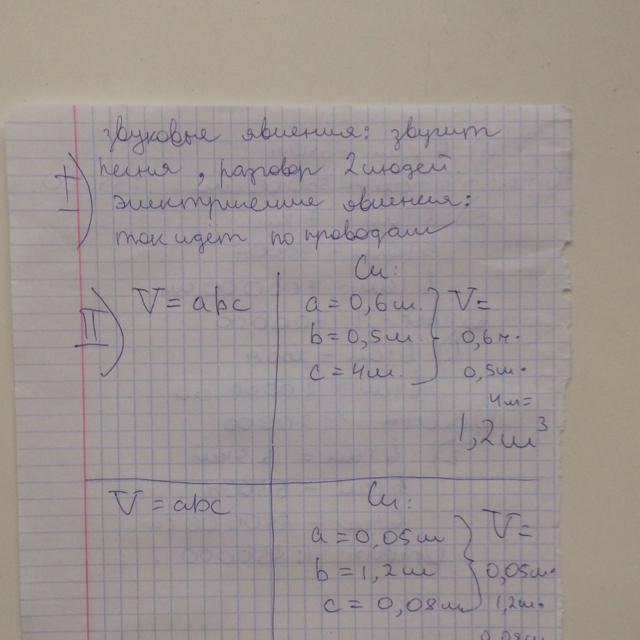 I) звуковые явления: звучит
песня, разговор 2 людей.
электрические явления:
ток идёт по проводам
II) V = abc
Си:
a = 0,6м
b = 0,5м
c = 4м
V =
0,6м·
0,5м·
4м=
1,2м³
V = abc
Си:
a = 0,05м
b = 1,2м
c = 0,08м
V =
0,05м·
1,2м·
0,08м